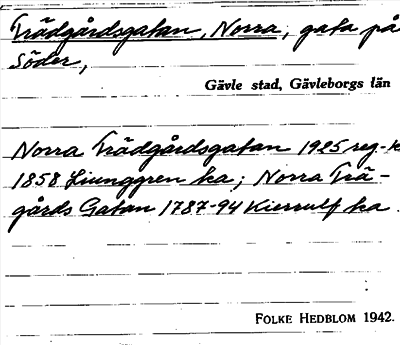 Trädgårdsgatan, Norra, gata på
Söder,
Gävle stad, Gävleborgs län
Norra Trädgårdsgatan 1925 reg-k
1858 Ljunggren ka; Norra Trä-
gårds Gatan 1787-94 Kierrulf ka.
FOLKE HEDBLOM 1942.